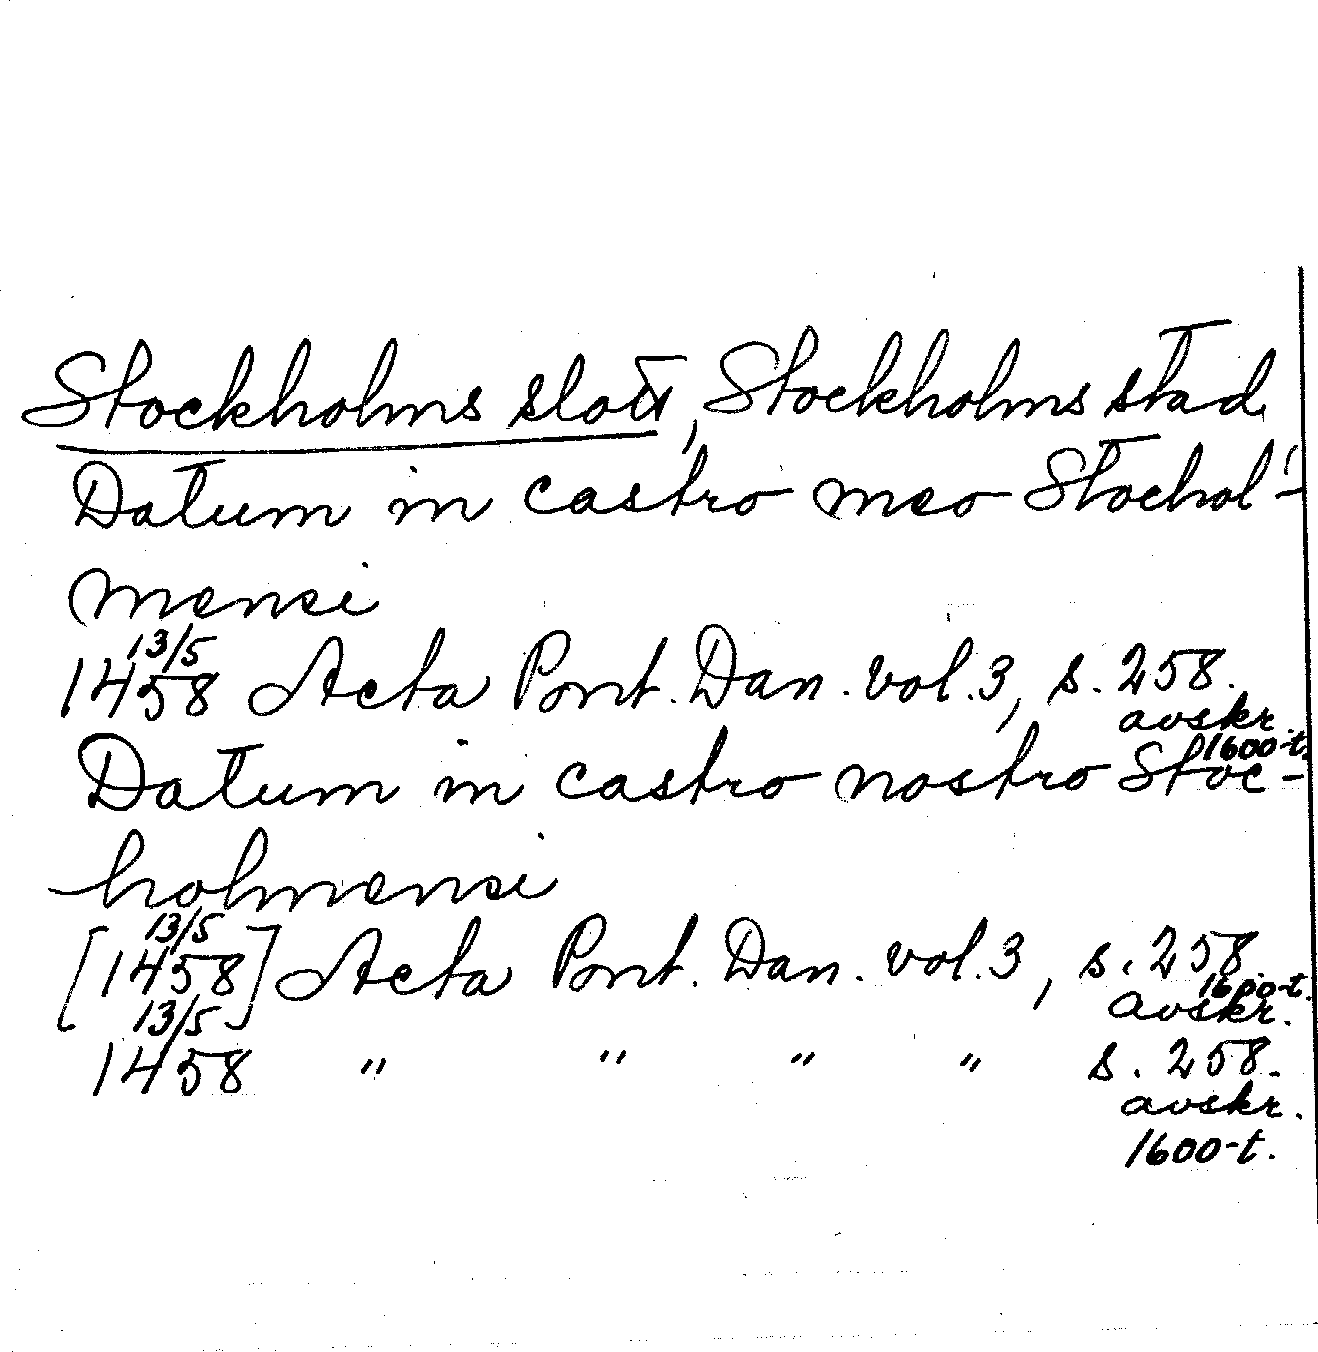 Stockholms slott, Stockholms stad
Datum in castro meo Stochol-
mensi
13/5
1458 Acta Pont. Dan. vol. 3, s. 258.
avskr.
1600-t.
Datum in castro nostro Stoc-
holmensi
13/5
[1458] Acta Pont. Dan. vol. 3, s. 258
1600-t.
avskr.
13/5
1458 " " " " s. 258.
avskr.
1600-t.